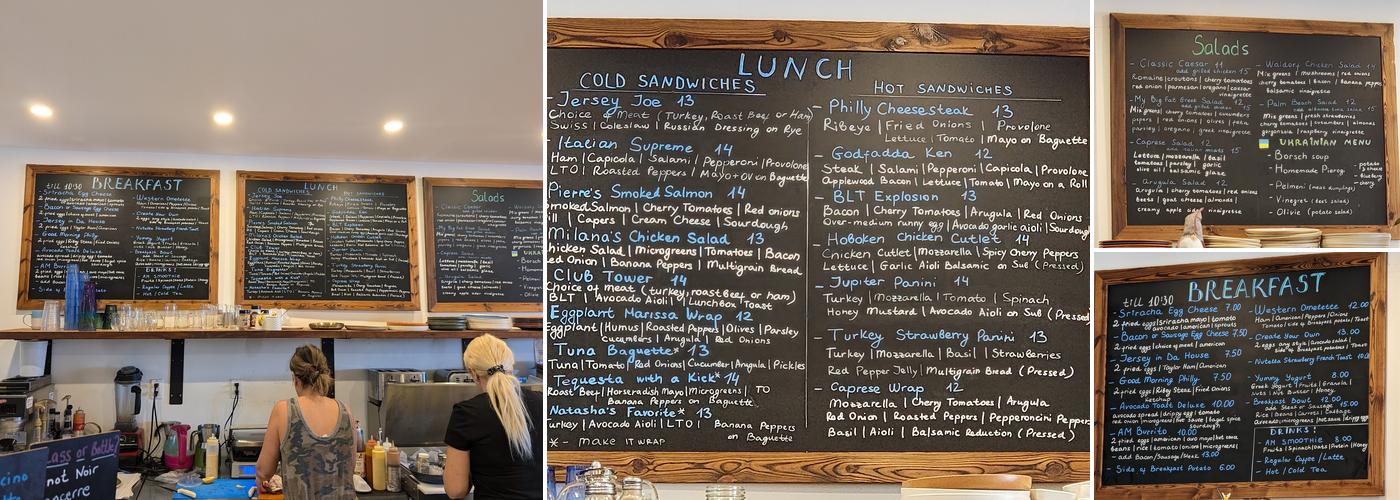 till 10:30 BREAKFAST
LUNCH
COLD SANDWICHES
HOT SANDWICHES
Salads
Glass or Bottle?
Pinot Noir
Sancerre
LUNCH
COLD SANDWICHES
- Jersey Joe 13
Choice of Meat (Turkey, Roast Beef or Ham)
Swiss | Coleslaw | Russian Dressing on Rye
- Italian Supreme 14
Ham | Capicola | Salami | Pepperoni | Provolone
LTO | Roasted Peppers | Mayo+OV on Baguette
Pierre's Smoked Salmon 14
Smoked Salmon | Cherry Tomatoes | Red onions
| Capers | Cream Cheese | Sourdough
Milana's Chicken Salad 13
Chicken Salad | Microgreens | Tomatoes | Bacon
Red Onion | Banana Peppers | Multigrain Bread
Club Tower 14
Choice of meat (turkey, roast beef or ham)
BLT | Avocado Aioli | Lunchbox Toast
Eggplant Marissa Wrap 12
Eggplant | Humus | Roasted Peppers | Olives | Parsley
Cucumbers | Arugula | Red Onions
Tuna Baguette* 13
Tuna | Tomato | Red Onions | Cucumber | Arugula | Pickles
Tequesta with a Kick* 14
Roast Beef | Horseradish Mayo | Microgreens | TO
Banana Peppers on Baguette
Natasha's Favorite* 13
Turkey | Avocado Aioli | LTO | Banana Peppers
on Baguette
*- make it wrap
HOT SANDWICHES
- Philly Cheesesteak 13
Ribeye | Fried Onions | Provolone
Lettuce | Tomato | Mayo on Baguette
- Godfadda Ken 12
Steak | Salami | Pepperoni | Capicola | Provolone
Applewood Bacon | Lettuce | Tomato | Mayo on a Roll
- BLT Explosion 13
Bacon | Cherry Tomatoes | Arugula | Red Onions
Over-medium runny egg | Avocado garlic aioli | Sourdough
- Hoboken Chicken Cutlet 14
Chicken Cutlet | Mozzarella | Spicy Cherry Peppers
Lettuce | Garlic Aioli Balsamic on Sub (Pressed)
- Jupiter Panini 14
Turkey | Mozzarella | Tomato | Spinach
Honey Mustard | Avocado Aioli on Sub (Pressed)
- Turkey Strawberry Panini 13
Turkey | Mozzarella | Basil | Strawberries
Red Pepper Jelly | Multigrain Bread (Pressed)
- Caprese Wrap 12
Mozzarella | Cherry Tomatoes | Arugula
Red Onion | Roasted Peppers | Pepperoncini Peppers
Basil | Aioli | Balsamic Reduction (Pressed)
Salads
- Classic Caesar 11
add grilled chicken 15
Romaine | croutons | cherry tomatoes
red onion | parmesan | oregano | caesar
vinaigrette
- My Big Fat Greek Salad 12
add grilled chicken 15
Mix greens | cherry tomatoes | cucumbers
peppers | red onions | olives | feta
parsley | oregano | greek vinaigrette
- Caprese Salad 12
Lettuce | mozzarella | basil
tomatoes | parsley | garlic
olive oil | balsamic glaze
- Arugula Salad 12
Arugula | tomatoes | red onions
beets | goat cheese | almonds
creamy apple vinaigrette
- Waldorf Chicken Salad 14
Mix greens | mushrooms | red onions
cherry tomatoes | bacon | banana peppers
balsamic vinaigrette
- Palm Beach Salad 12
Mix greens | fresh strawberries
cherry tomatoes | cucumbers | almonds
gorgonzola | raspberry vinaigrette
UKRAINIAN MENU
- Borsch soup
- Homemade Pierogi
- potato
- cheese
- blueberry
- cherry
- Pelmeni (meat dumplings)
- Vinegret (beet salad)
- Olivie (potato salad)
till 10:30 BREAKFAST
- Sriracha Egg Cheese 7.00
2 fried eggs | sriracha mayo | tomato
avocado | american | sprouts
- Bacon or Sausage Egg Cheese 7.50
2 fried eggs | choice of meat | american
- Jersey in Da House 7.50
2 fried eggs | Taylor Ham | American
- Good Morning Philly 7.50
2 fried eggs | Ribeye Steak | Fried Onions
ketchup
- Avocado Toast Deluxe 10.00
avocado spread | drippy egg | tomato
sourdough
- AM Burrito 10.00
- add Bacon/Sausage/Steak 13.00
- Side of Breakfast Potato 6.00
- Western Omelette 12.00
Ham | American | Peppers | Onions
Tomato | side of Breakfast potato | Toast
- Create Your Own 13.00
2 eggs any style | Avocado salad |
side of Breakfast potatoes | Toast
- Nutella Strawberry French Toast
- Yummy Yogurt 8.00
Greek Yogurt | Fruits | Granola |
Nuts | Nut Butter | Honey
- Breakfast Bowl 12.00
add Steak or Sausage 15.00
DRINKS!
- AM SMOOTHIE 8.00
Fruits | Spinach | Oats | Protein | Honey
- Regular Coffee / Latte
- Hot / Cold Tea